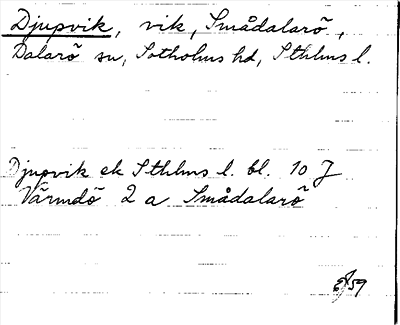 Djupvik, vik, Smådalarö,
Dalarö sn, Sotholms hd, Sthlms l.
Djupvik ek Sthlms l. bl. 10 J
Värmdö 2 a Smådalarö
59